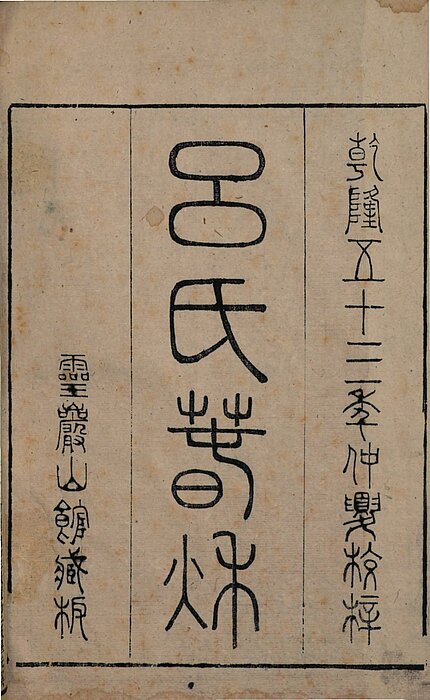 乾隆五十三年仲夏校梓
呂氏春秋
靈巖山館藏板